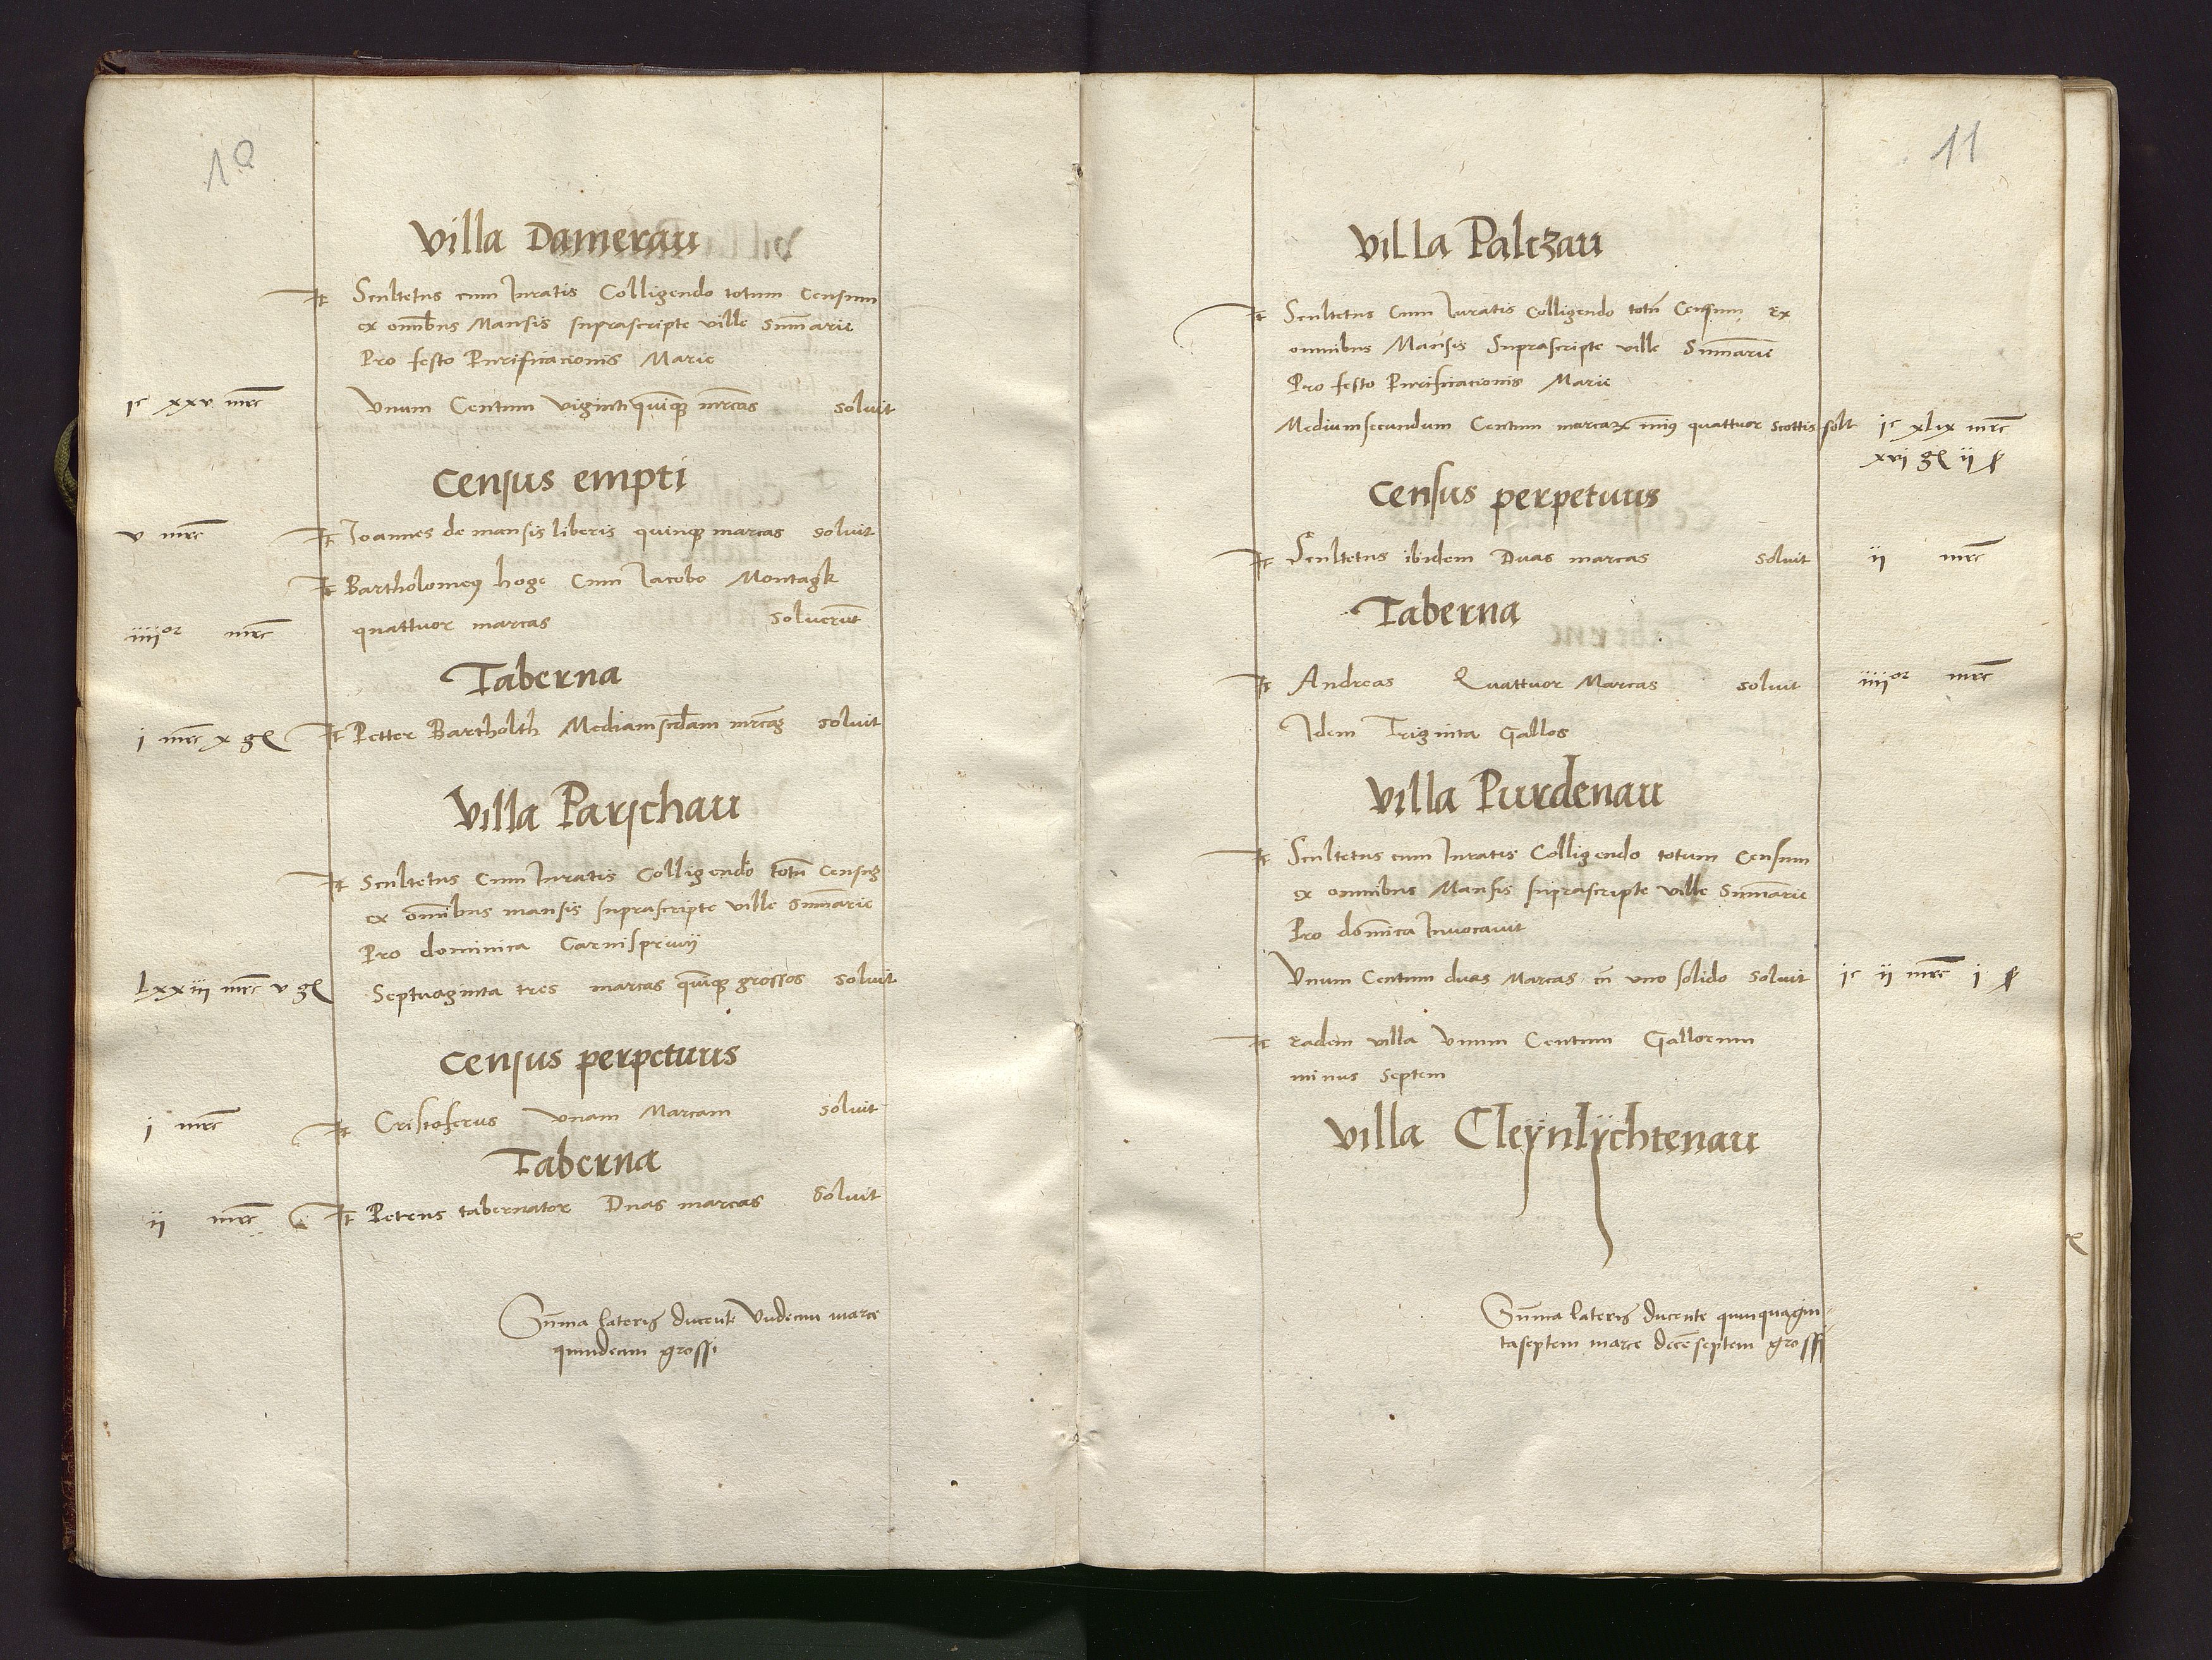 10
Villa Damerau
It Scultetus cum Iuratis Colligendo totum Censum
ex omibus Mansis suprascripte ville Summarie
Pro festo Purificacionis Marie
jc xxv mrc Vnum Centum viginti quinqz mrcas soluit
Census empti
v mrc It Ioannes de mansis liberis quinqz marcas soluit
It Bartholomeus hoge Cum Iacobo Montagk
iiiior mrc quattuor marcas soluerunt
Taberna
i mrc x gl It Petter Bartholth Mediam scdam mrcaz soluit
Villa Parschau
It Scultetus Cum Iuratis Colligendo totum Censuz
ex omnibus mansis suprascripte ville Summarie
Pro dominica Carnispriuij
Lxxiij mrc v gl Septuaginta tres marcas quinqz grossos soluit
Census perpetuus
i mrc It Cristoferus vnam Marcam soluit
Taberna
ij mrc It Petrus tabernator Duas marcas soluit
Summa lateris ducente Vndecim marce
quindecim grossi
11
Villa Palczau
It Scultetus Cum Iuratis Colligendo totum Censum Ex
omnibus Mansis Suprascripte ville Summarie
Pro festo Purificacionis Marie
Medium secundum Centum marcarum minus quattuor Scottis solt jc xlix mrc
xvi gl ij ß
Census perpetuus
It Scultetus ibidem Duas marcas soluit ij mrc
Taberna
It Andreas Quattuor Marcas soluit iiiior mrc
Idem Triginta Gallos
Villa Purdenau
It Scultetus cum Iuratis Colligendo totum Censum
ex omnibus Mansis suprascripte ville Summarie
Pro dominica Inuocauit
Vnum Centum duas Marcas cum vno solido soluit jc ij mrc i ß
It eadem villa Vnum Centum Gallorum
minus Septem
Villa Cleÿnlÿchtenau
Summa lateris ducente quinquagin-
taseptem marce decemseptem grossi